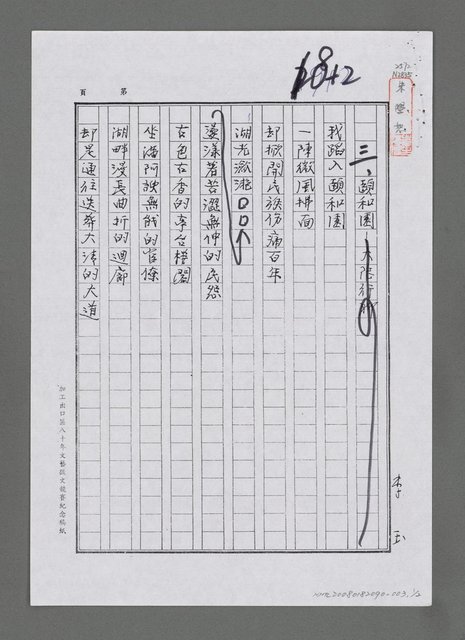 18+2
25/2
頁 第
三、頤和園-大陸行
我踏入頤和園
一陣微風拂面
却掀開民族傷痛百年
湖光瀲灩
漫漾着苦澀無伸的民怨
古色古香的亭台樓閣
坐滿阿諛無能的官僚
湖畔漫長曲折的迴廊
却是通往送葬大清的大道
李玉
加工出口區八十年文藝散文競賽紀念稿紙